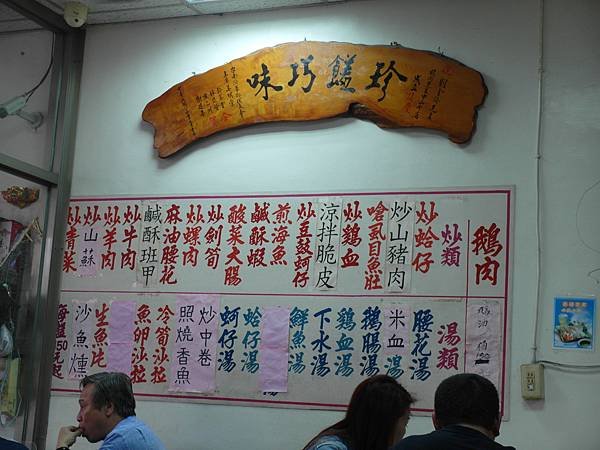 珍饈巧味
鵝肉
炒類
炒蛤仔
炒山豬肉
嗆虱目魚肚
炒雞血
涼拌脆皮
炒豆鼓蚵仔
煎海魚
鹹酥蝦
酸菜大腸
炒劍筍
炒螺肉
麻油腰花
鹹酥班甲
炒牛肉
炒羊肉
炒山蘇
炒青菜
湯類
腰花湯
米血
鵝腸湯
雞血湯
下水湯
鮮魚湯
蛤仔湯
蚵仔湯
炒中卷
照燒香魚
冷筍沙拉
魚卵沙拉
生魚片
沙魚燻
每盤50元起